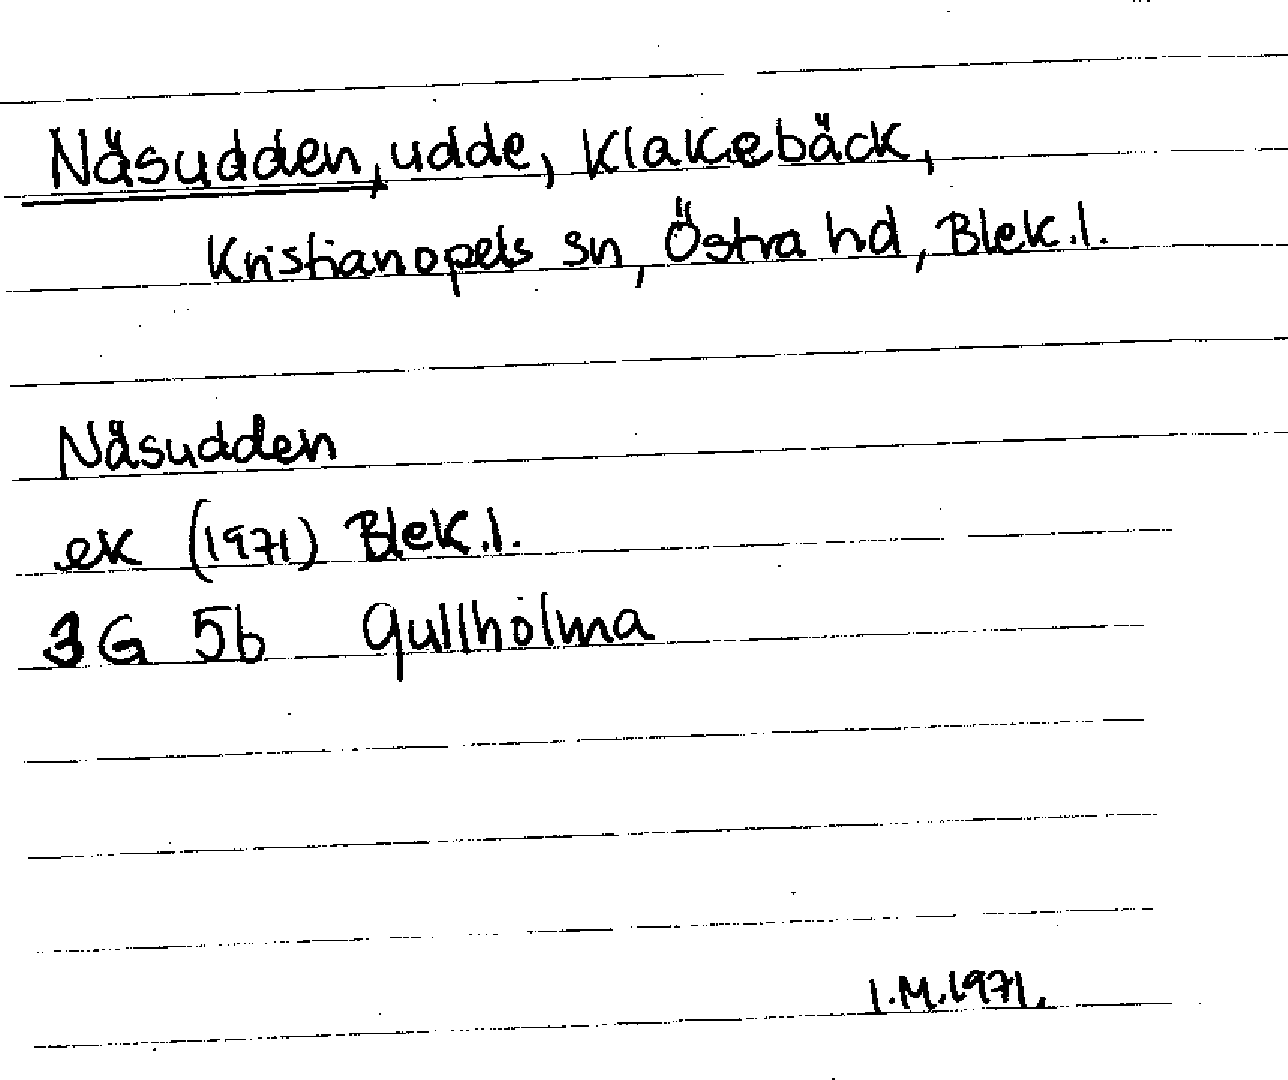 Näsudden, udde, Klakebäck,
Kristianopels sn, Östra hd, Blek.l.
Näsudden
ek (1971) Blek.l.
3G 5b Gullholma
I.M.1971.